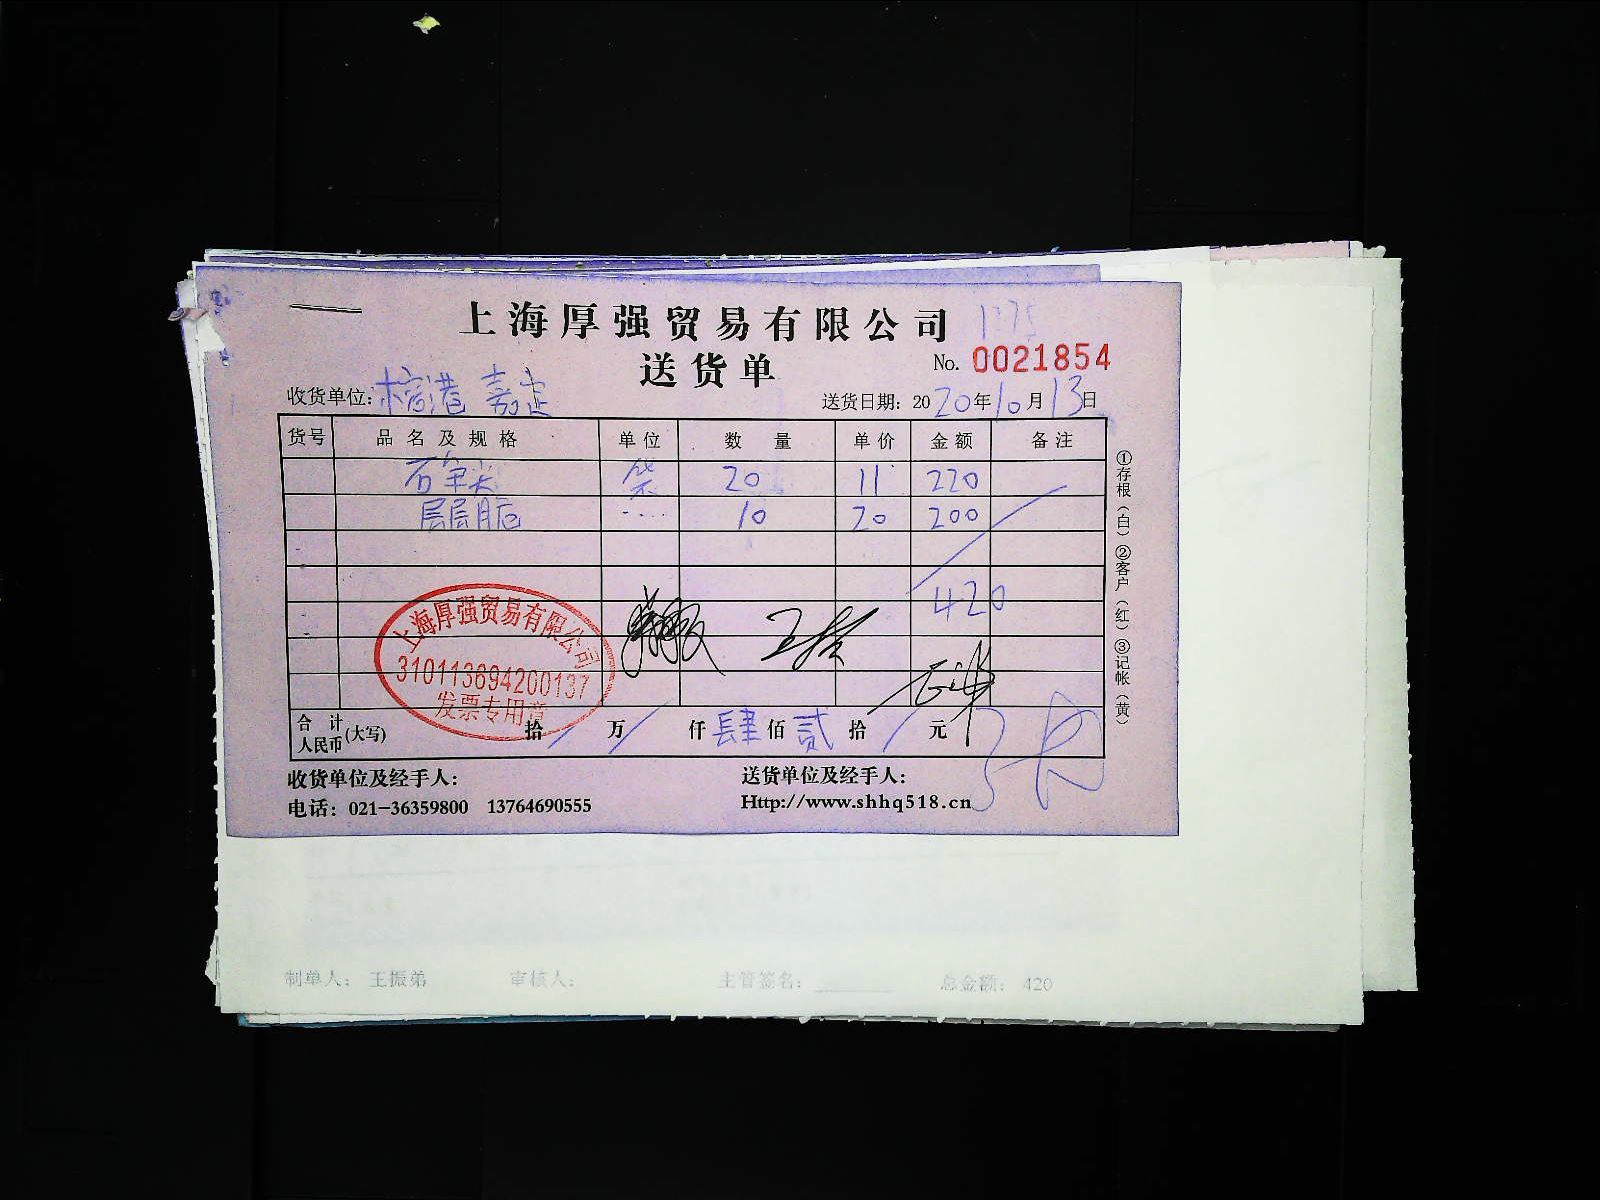 上海厚强贸易有限公司
1175
送货单
No. 0021854
收货单位: 榕港 嘉定
送货日期: 2020年10月13日
货号 品名及规格 单位 数量 单价 金额 备注
笋尖 袋 20 11 220
层层脆 10 20 200
420
上海厚强贸易有限公司
310113694200137
发票专用章
合计人民币(大写) 拾 万 仟 肆 佰 贰 拾 元
①存根(白)②客户(红)③记帐(黄)
收货单位及经手人:
送货单位及经手人:
电话: 021-36359800 13764690555
Http://www.shhq518.cn
制单人: 王振弟 审核人: 主管签名: 总金额: 420